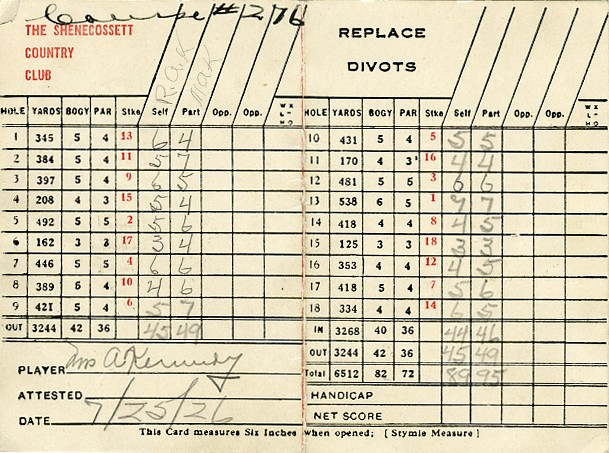 Course #276
THE SHENECOSSETT
COUNTRY
CLUB
R.a.K
MaK
HOLE YARDS BOGY PAR Stke Self Part Opp. Opp. WX L-H-O
1 345 5 4 13 6 4
2 384 5 4 11 5 7
3 397 5 4 9 6 5
4 208 4 3 15 5 4
5 492 5 5 2 5 6
6 162 3 3 17 3 4
7 446 5 5 4 6 6
8 389 5 4 10 4 6
9 421 5 4 6 5 7
OUT 3244 42 36 45 49
PLAYER
ATTESTED
DATE 7/25/26
REPLACE
DIVOTS
HOLE YARDS BOGY PAR Stke Self Part Opp. Opp. WX L-H-O
10 431 5 4 5 5 5
11 170 4 3 16 4 4
12 481 5 5 3 6 6
13 538 6 5 1 9 7
14 418 4 4 8 4 5
15 125 3 3 18 3 3
16 353 4 4 12 4 5
17 418 5 4 7 5 6
18 334 4 4 14 6 5
IN 3268 40 36 44 46
OUT 3244 42 36 45 49
Total 6512 82 72 89 95
HANDICAP
NET SCORE
This Card measures Six Inches when opened; [Stymie Measure]